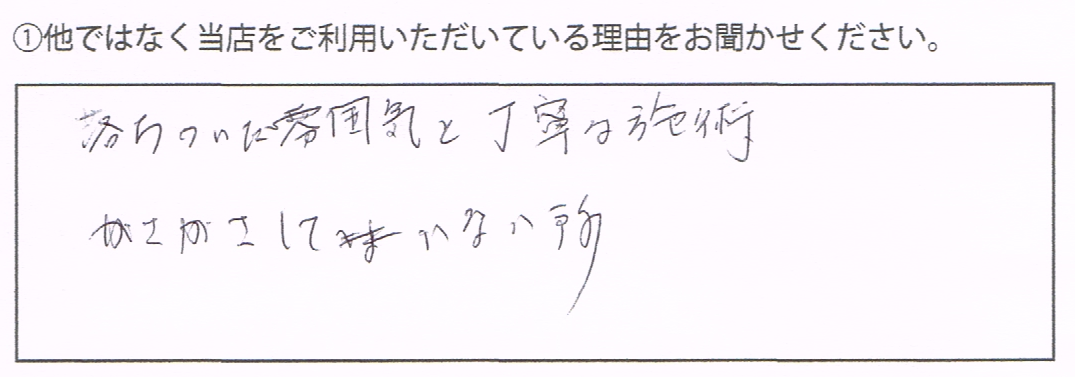 ①他ではなく当店をご利用いただいている理由をお聞かせください。
落ちついた雰囲気と丁寧な施術
がさがさしていない所